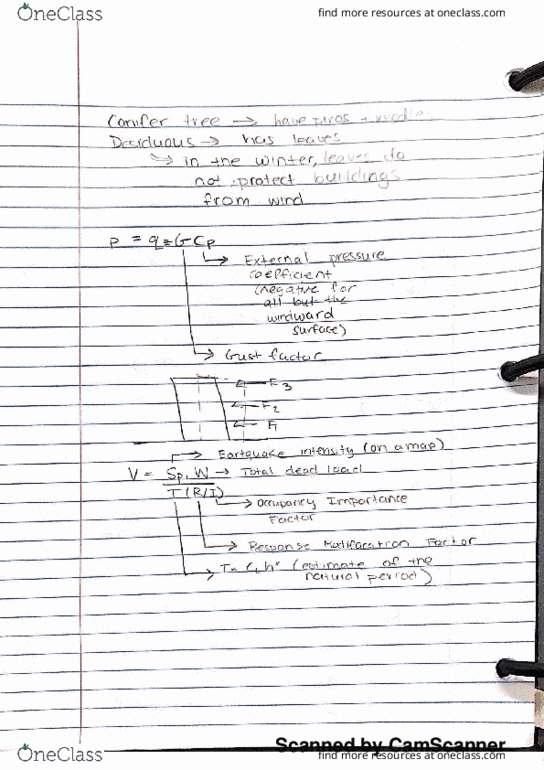 OneClass
find more resources at oneclass.com
Conifer tree → have
Deciduous → has leaves
↳ in the winter, leaves do
not protect buildings
from wind
p = qzGCp
→ External pressure
coefficient
(negative for
all but the
windward
surface)
→ Gust factor
F3
F2
F1
→ Earthquake intensity (on a map)
V = Sp, W → Total dead load
T (R/I)
→ Occupancy Importance
Factor
→ Response Modification Factor
→ T = (estimate of the
natural period)
Scanned by CamScanner
OneClass
find more resources at oneclass.com